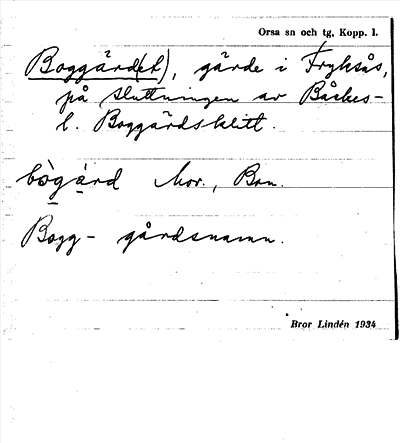 Orsa sn och tg, Kopp. l.
Boggärd(et), gärde i Fryksås,
på sluttningen av Båckes-
l. Boggärdsklitt.
bògä̀rd Mor., Bon.
Bogg- gårdsnamn.
Bror Lindén 1934